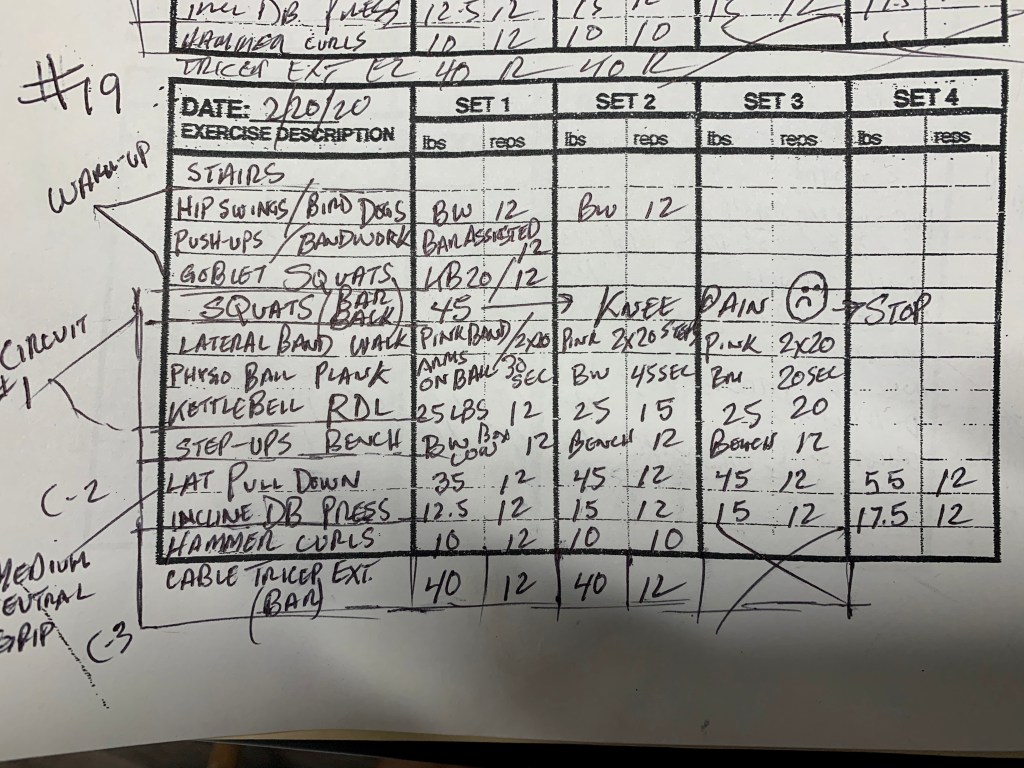 INCL DB PRESS 12.5 12 15 12 15 12 17.5
HAMMER CURLS 10 12 10 10
TRICEP EXT EZ 40 12 40 12
#19
DATE: 2/20/20 SET 1 SET 2 SET 3 SET 4
EXERCISE DESCRIPTION lbs reps lbs reps lbs reps lbs reps
WARM-UP
STAIRS
HIP SWINGS/BIRD DOGS BW 12 BW 12
PUSH-UPS / BANDWORK BAR ASSISTED 12
GOBLET SQUATS KB20/12
SQUATS (BAR BACK) 45 → KNEE PAIN ☹ → STOP
CIRCUIT #1
LATERAL BAND WALK PINK BAND/2x20 PINK 2x20 STEPS PINK 2x20
PHYSIO BALL PLANK ARMS ON BALL 30 SEC BW 45 SEC BW 20 SEC
KETTLEBELL RDL 25 LBS 12 25 15 25 20
STEP-UPS BENCH BW BOX LOW 12 BENCH 12 BENCH 12
C-2
LAT PULL DOWN 35 12 45 12 45 12 55 12
INCLINE DB PRESS 12.5 12 15 12 15 12 17.5 12
HAMMER CURLS 10 12 10 10
MEDIUM
EUTRAL
GRIP
CABLE TRICEP EXT. (BAR) 40 12 40 12
C-3